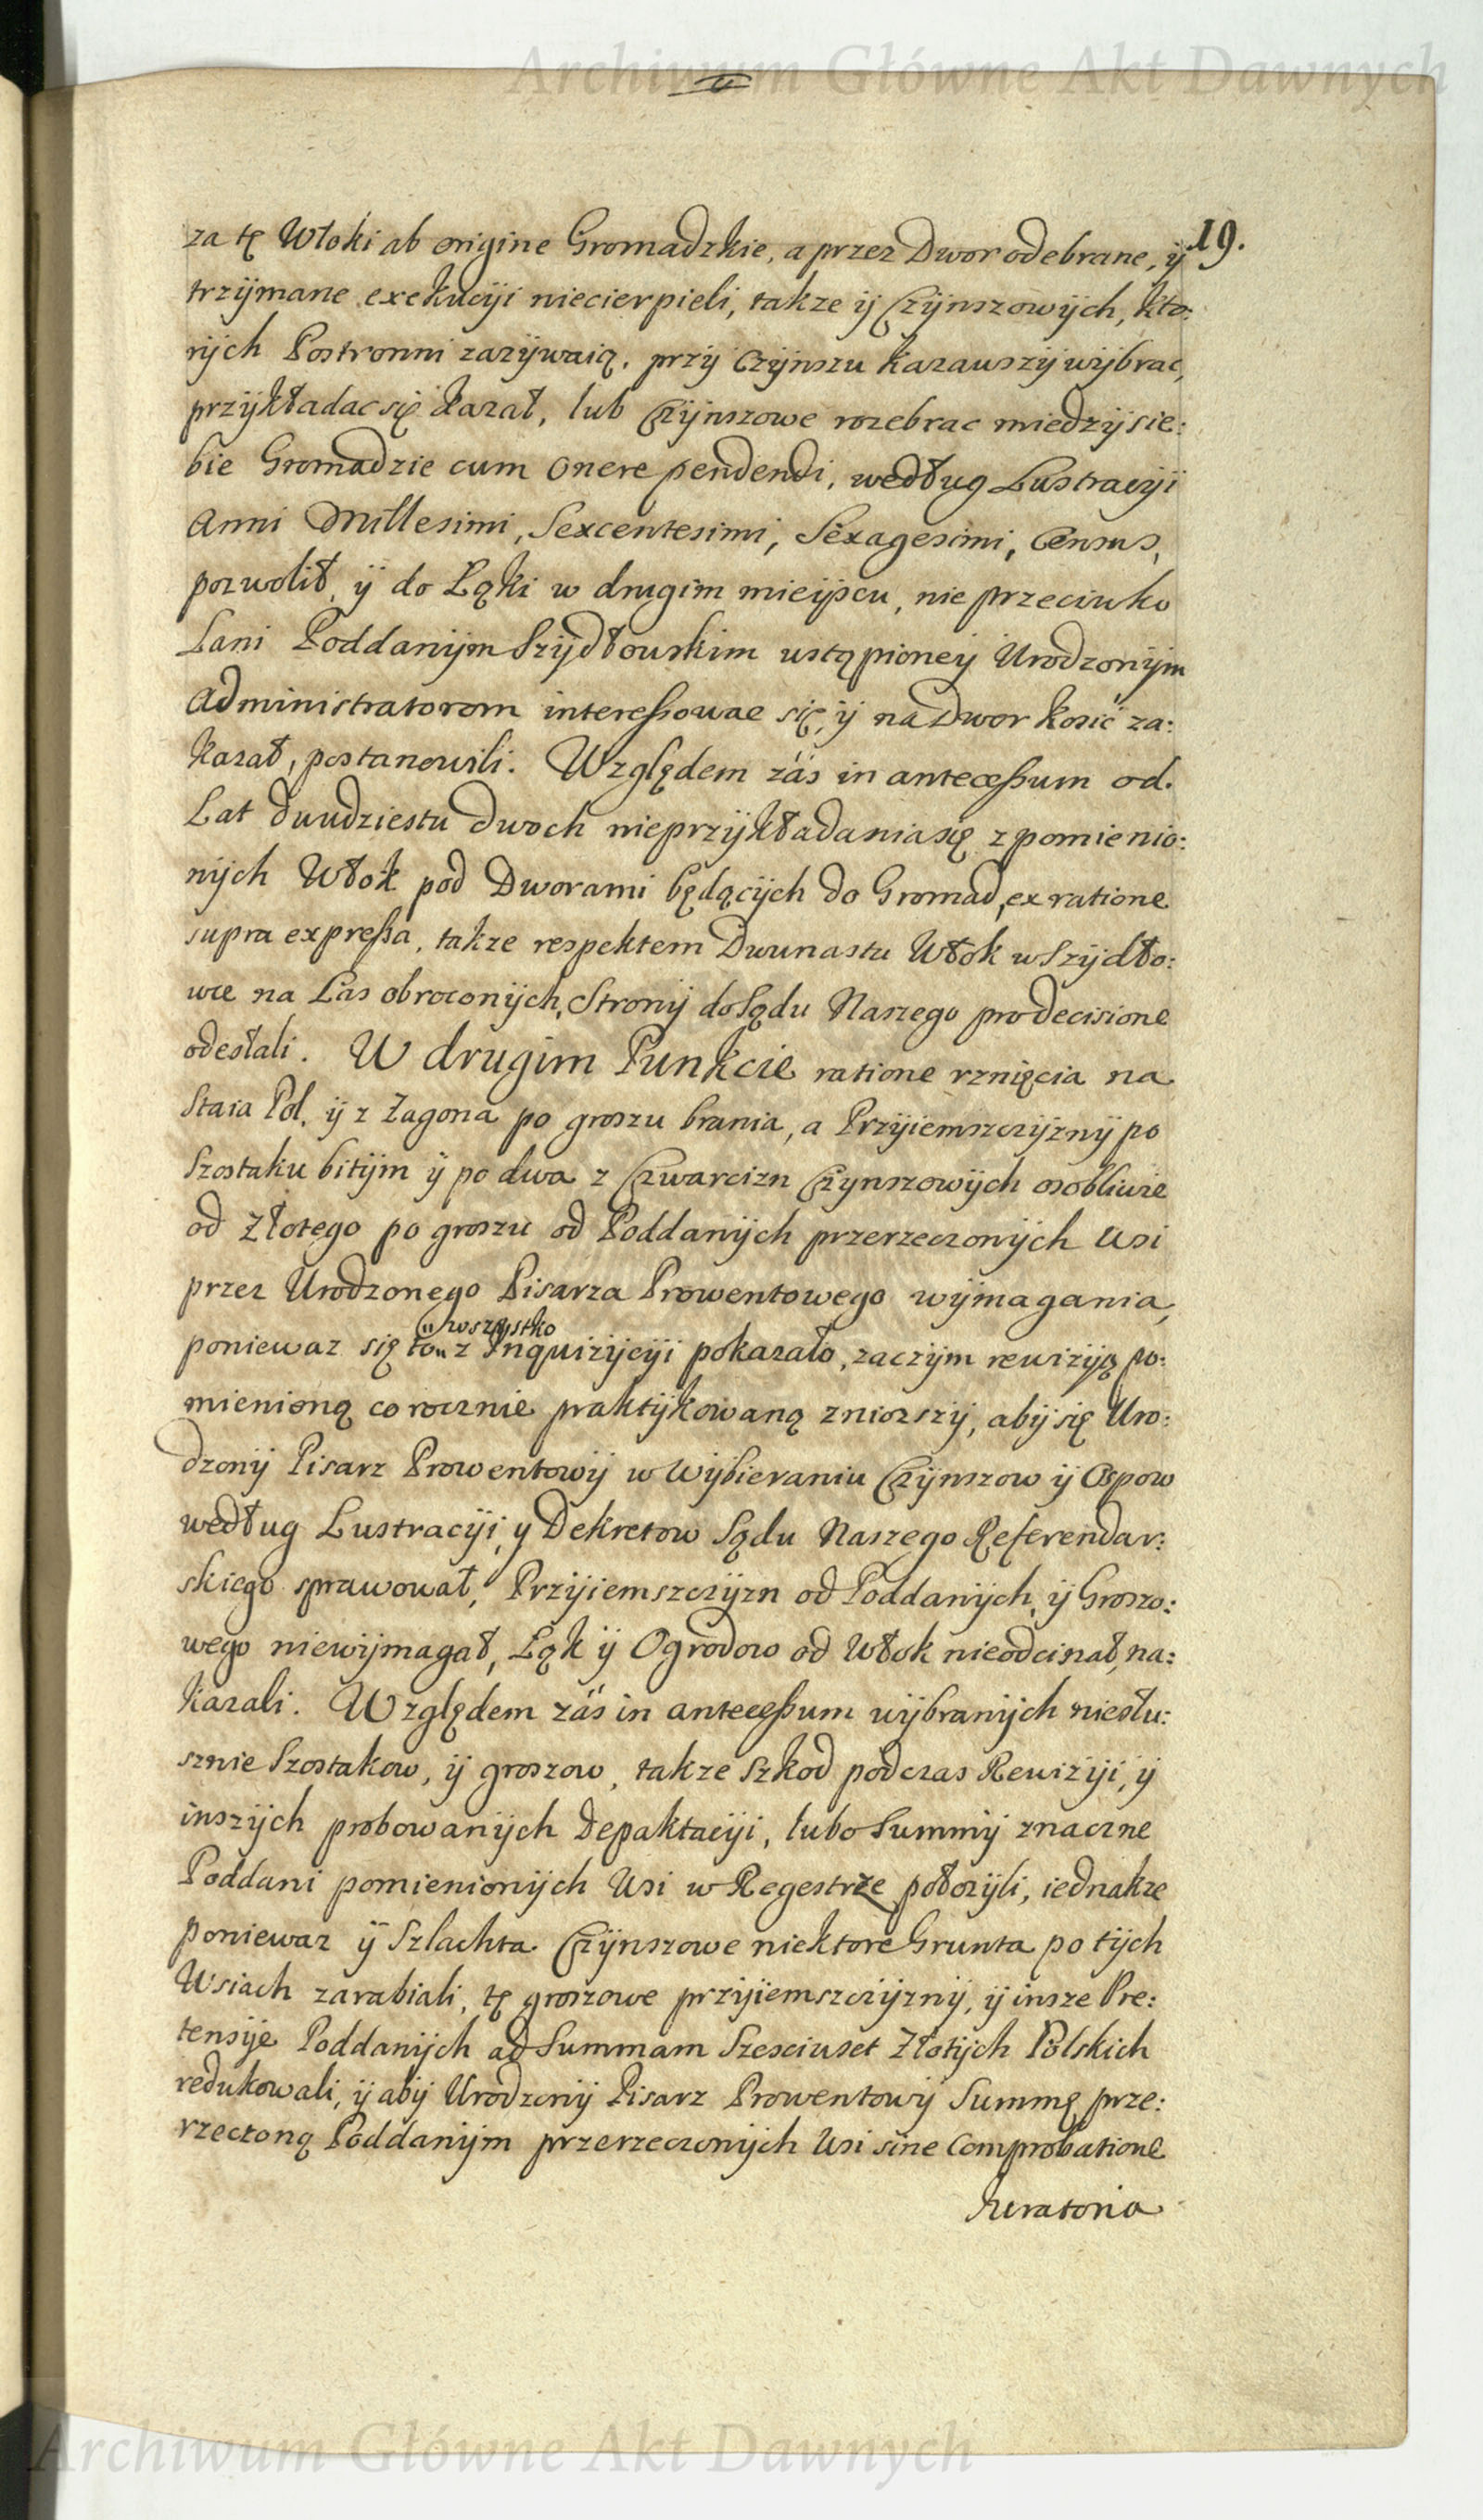 Archiwum Główne Akt Dawnych
19.
za tę Włoki ab origine Gromadzkie, a przez Dwor odebrane, ÿ
trzÿmane exekucÿi niecierpieli, takze ÿ Czÿnszowÿch, kto:
rÿch Postronni zazÿwaią, przÿ Czÿnszu kazawszÿ wÿbrac,
przÿkładac się kazał, lub Czÿnszowe rozebrac miedzÿ sie:
bie Gromadzie cum onere pendendi, według Lustracÿi
Anni Millesimi, Sexcentesimi, Sexagesimi, Census,
pozwolił, ÿ do Łąki w drugim mieÿscu, nie przeciwko
Łani Poddanÿm Szÿdłowskim ustąpioneÿ Urodzonÿm
Administratorom interessowac się, ÿ na Dwor kosić za:
kazał, postanowili. Względem zás in antecessum od
Lat dwudziestu dwoch nieprzÿkładania się z pomienio:
nÿch Włok pod Dworami będącÿch do Gromad, ex ratione
supra expressa, takze respektem Dwunastu Włok w Szÿdło:
wce na Las obroconÿch, Stronÿ do Sądu Naszego pro decisione
odesłali. W drugim Punkcie ratione rznięcia na
Staia Pol, ÿ z Zagona po groszu brania, a Przÿiemszczÿznÿ po
Szostaku bitÿm ÿ po dwa z Czwarcizn Czynszowÿch osobliwie
od Złotego po groszu od Poddanÿch przerzeczonÿch Wsi
przez Urodzonego Pisarza Prowentowego wÿmagania,
wszystko
poniewaz się to z Inquizÿcÿi pokazało, zaczÿm rewizÿą po:
mienioną corocznie praktÿkowaną zniozszÿ, abÿ się Uro:
dzonÿ Pisarz Prowentowÿ w Wÿbieraniu Czÿnszow ÿ Ospow
według Lustracÿi, y Dekretow Sądu Naszego Referendar:
skiego sprawował, Przÿiemszczÿzn od Poddanÿch, ÿ Groszo:
wego niewÿmagał, Łąk ÿ Ogrodow od Włok nieodcinał, na:
kazali. Względem zás in antecessum wÿbranÿch niesłu:
sznie Szostakow, ÿ groszow, takze Szkod podczas Rewizÿi, ÿ
inszÿch probowanÿch Depaktacÿi, lubo Summÿ znaczne
Poddani pomienionÿch Wsi w Regestrze położÿli, iednakze
poniewaz ÿ Szlachta Czÿnszowe niektore Grunta po tÿch
Wsiach zarabiali, tę groszowe przÿiemszczÿznÿ, ÿ insze Pre:
tensÿe Poddanÿch ad Summam Szesciuset Złotÿch Polskich
redukowali, ÿ abÿ Urodzonÿ Pisarz Prowentowÿ Summę prze:
rzeczoną Poddanÿm przerzeczonÿch Wsi sine Comprobatione
Juratoria
Archiwum Główne Akt Dawnych